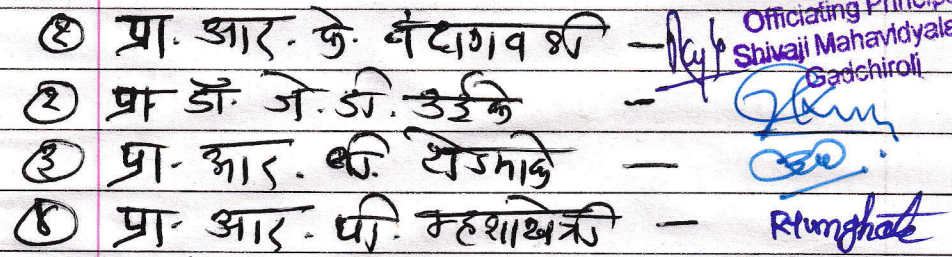 ① प्रा. आर. के. चंदागवळी - Officiating Princip
Shivaji Mahavidyala
Gadchiroli
② प्रा डॉ. जे. डी. उईके -
③ प्रा. आर. बी. थेरकाके -
④ प्रा. आर. पी. म्हशाखेत्री - RHunghate